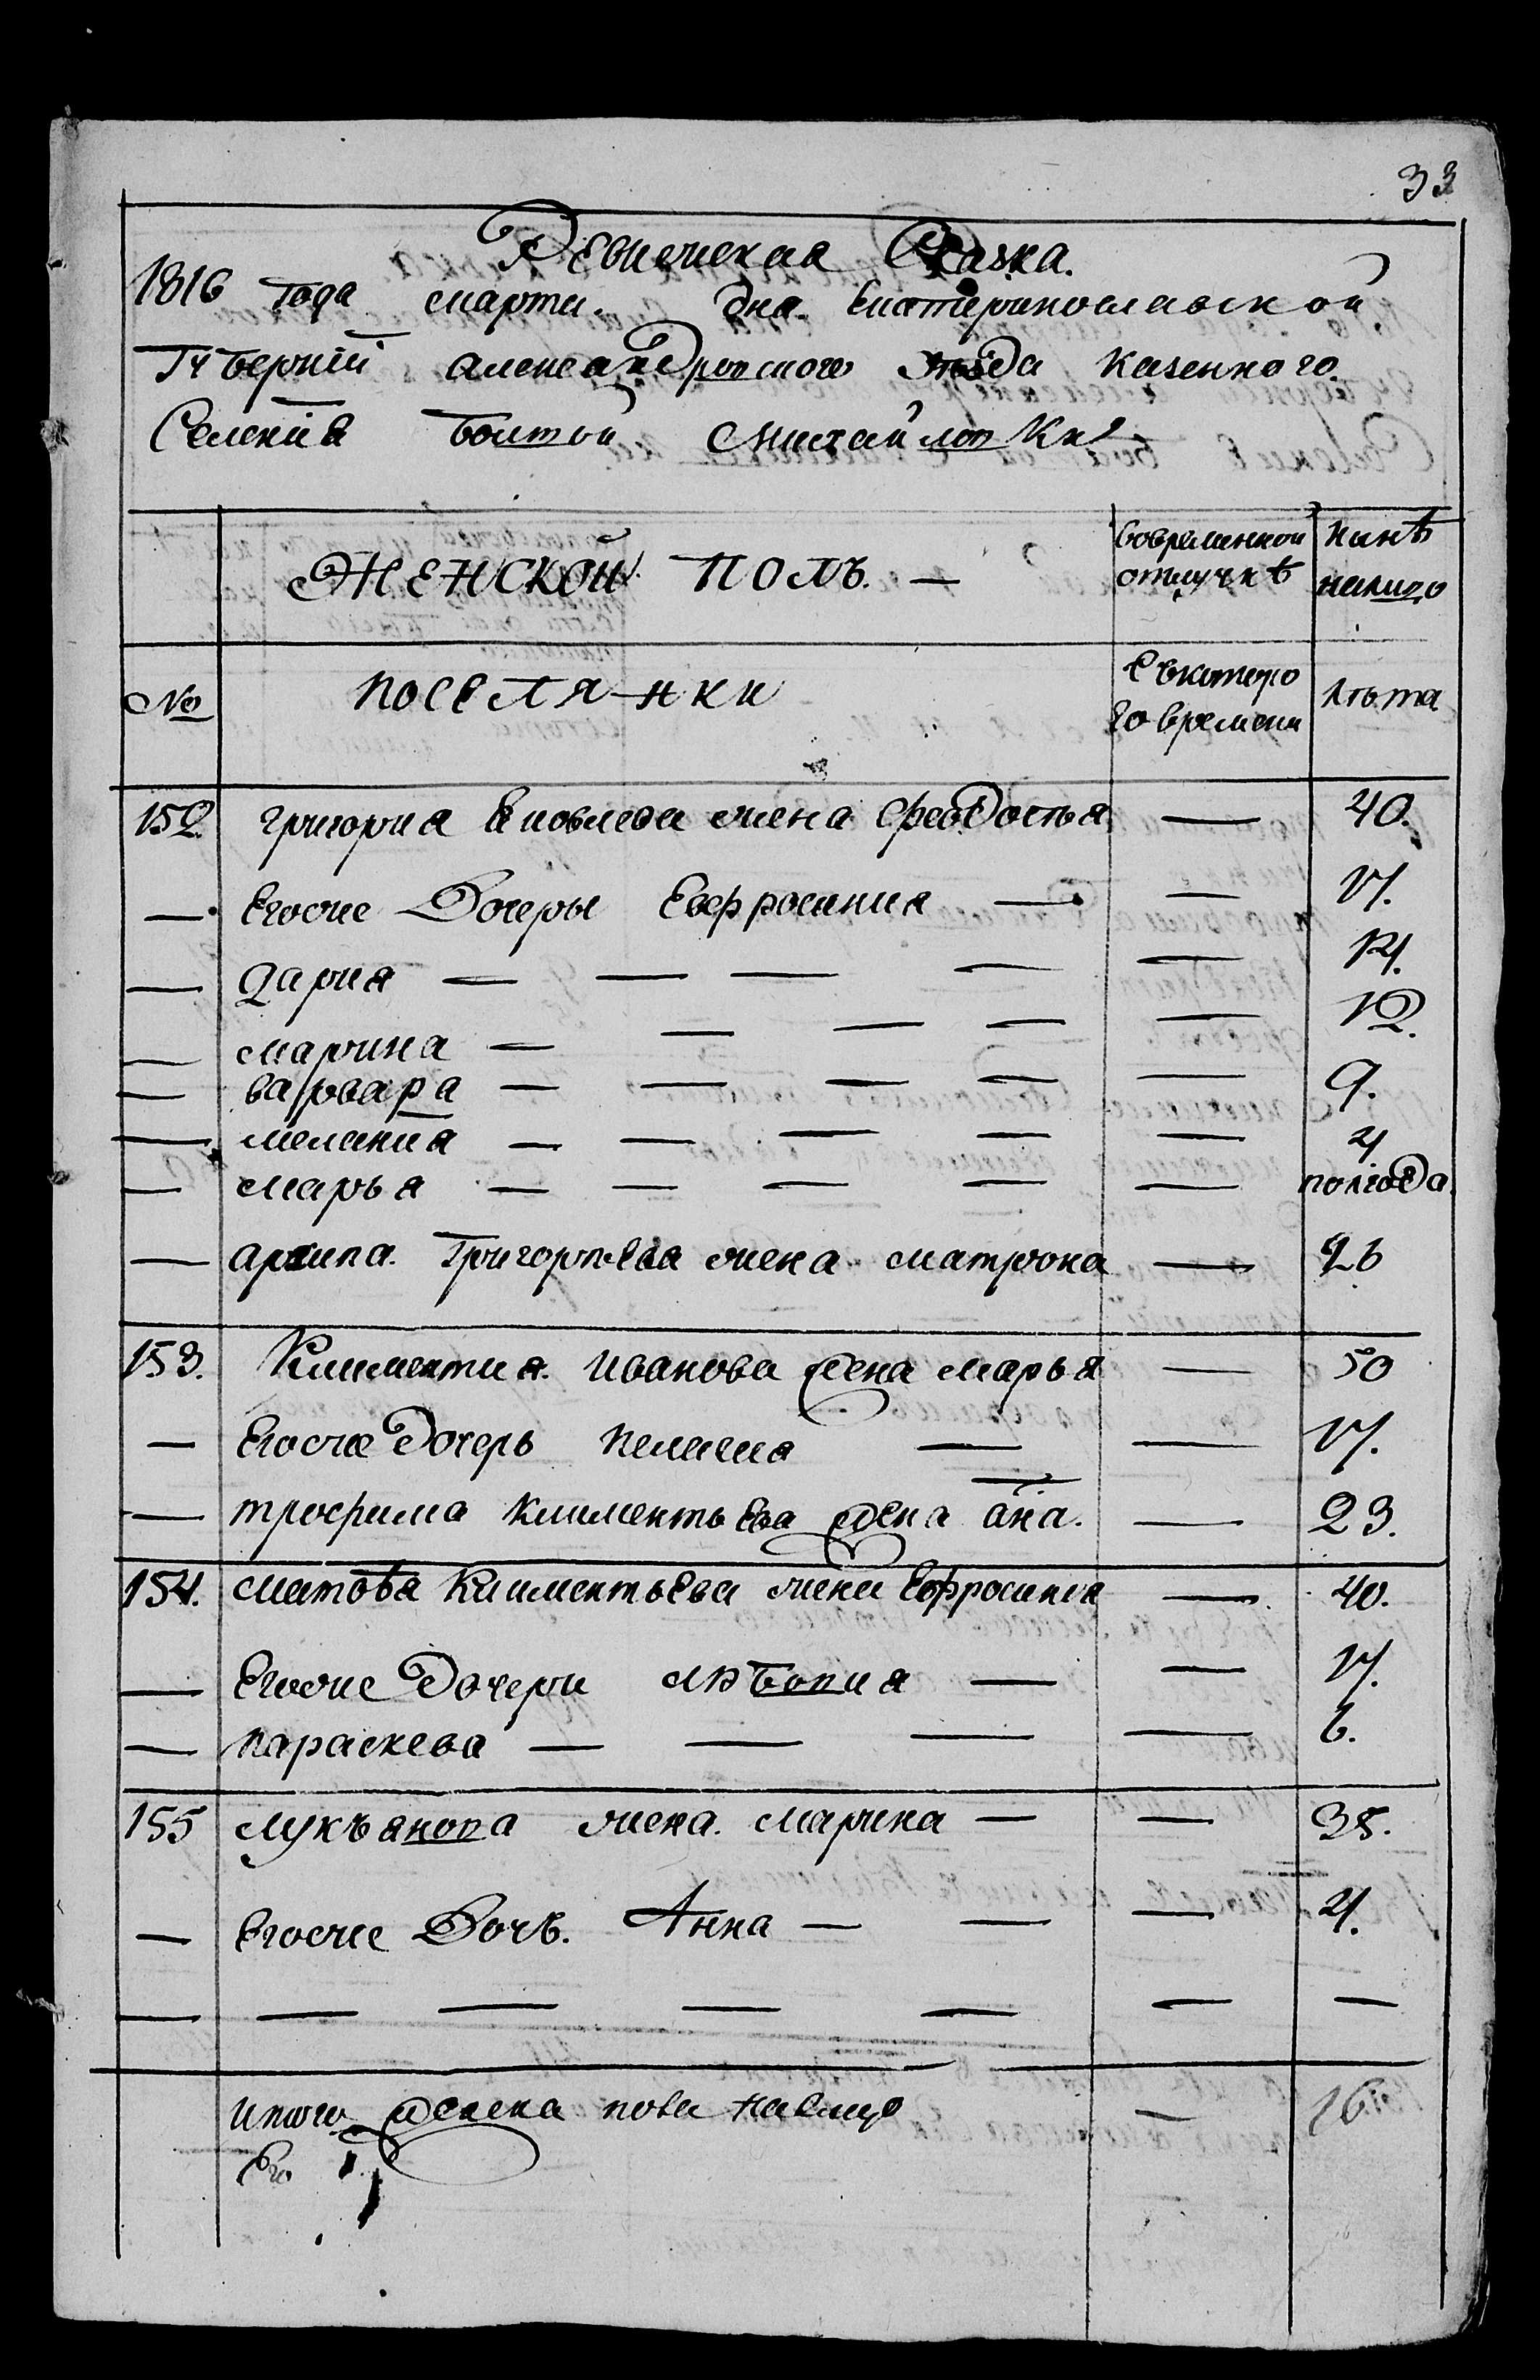 33
Ревижская Сказка.
1816 года марта дня Екатеринославской
Губернiй александровского уезда казенного
Селенiя болшой михайловки
Женской полъ. —
Вовременной отлучкѣ
Нынѣ налицо
№ поселянки
Съкоторо го времени
лѣта
152. григория Яковлева жена феодосья — 40.
— Егоже Дочеры Ефросиния — — 17.
— дария — — — — — 14.
— марина — — — — — 12.
— варвара — — — — — 9.
— мелания — — — — — 4
— марья — — — — — полгода.
— архипа Григорьева жена матрона — 26
153. Климентия Иванова жена марья — 50
— Егоже Дочерь пелагея — — 17.
— трофима климентьева жена ана. — 23.
154. матвѣя Климентьева жена Ефросиния — 40.
— Егоже Дочери — — 17.
— параскева — — — — 6.
155 лукьянова жена марина — — 38.
— Егоже Дочь. Анна — — — 4.
— — — — — — —
Итого женска пола налицо — 16